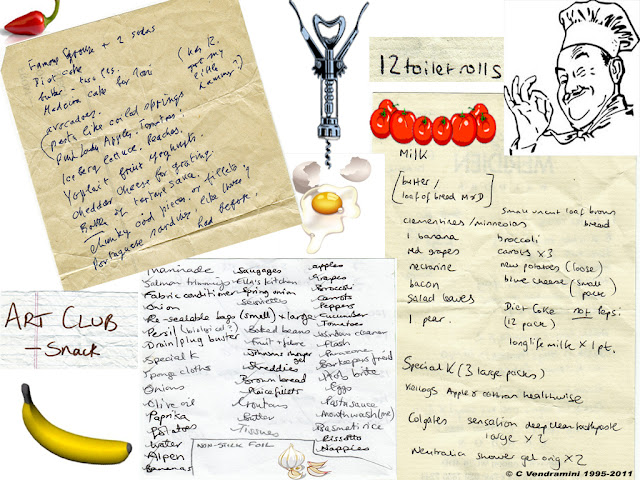 Famous Grouse + 2 sodas
Diet Coke
butter - two lbs.
Madeira cake for Toni
(has R.
got my
little
avocadoes.
(Pasta like coiled springs
Pink Lady Apples. Tomatoes.
Iceberg lettuce. Peaches.
Yoplait fruit yoghurts.
cheddar cheese for grating.
Bottle of tartare sauce.
Chunky cod pieces. or fillets,
Portuguese sardines like I have
had before.
12 toilet rolls
Milk
[butter /
loaf of bread M+D
small uncut loaf brown
bread
clementines / minneolas
1 banana
red grapes
nectarine
bacon
salad leaves
1 pear.
broccoli
carrots x 3
new potatoes (loose)
blue cheese (small
pack)
Diet Coke not Pepsi
(12 pack)
longlife milk x 1 pt.
Special K (3 large packs)
Kellogs Apple & healthwise
Colgates sensation deep clean toothpaste
large x 2
Neutralia shower gel orig x 2
ART CLUB
- Snack
marinade
Salmon trimmings
Fabric conditioner
Onion
Re-sealable bags (small) + large
Persil (biological?)
Drain/plug buster
Special K
Sponge cloths
Onions
Olive oil
Paprika
Potatoes
Water
Alpen
Bananas
Sausages
Ella's kitchen
Spring onion
Serviettes
Baked beans
Fruit + fibre
Johnsons
gel
Shreddies
Brown bread
Plaice fillets
Croutons
Butter
Tissues
NON-STICK FOIL
apples
Grapes
Broccoli
Carrots
Peppers
Cucumber
Tomatoes
Window cleaner
Flash
Parmesan
Barkeepers friend
Hob brite
Eggs
Pasta sauce
Mouthwash (me)
Basmati rice
Rissotto
Nappies
© C Vendramini 1995-2011